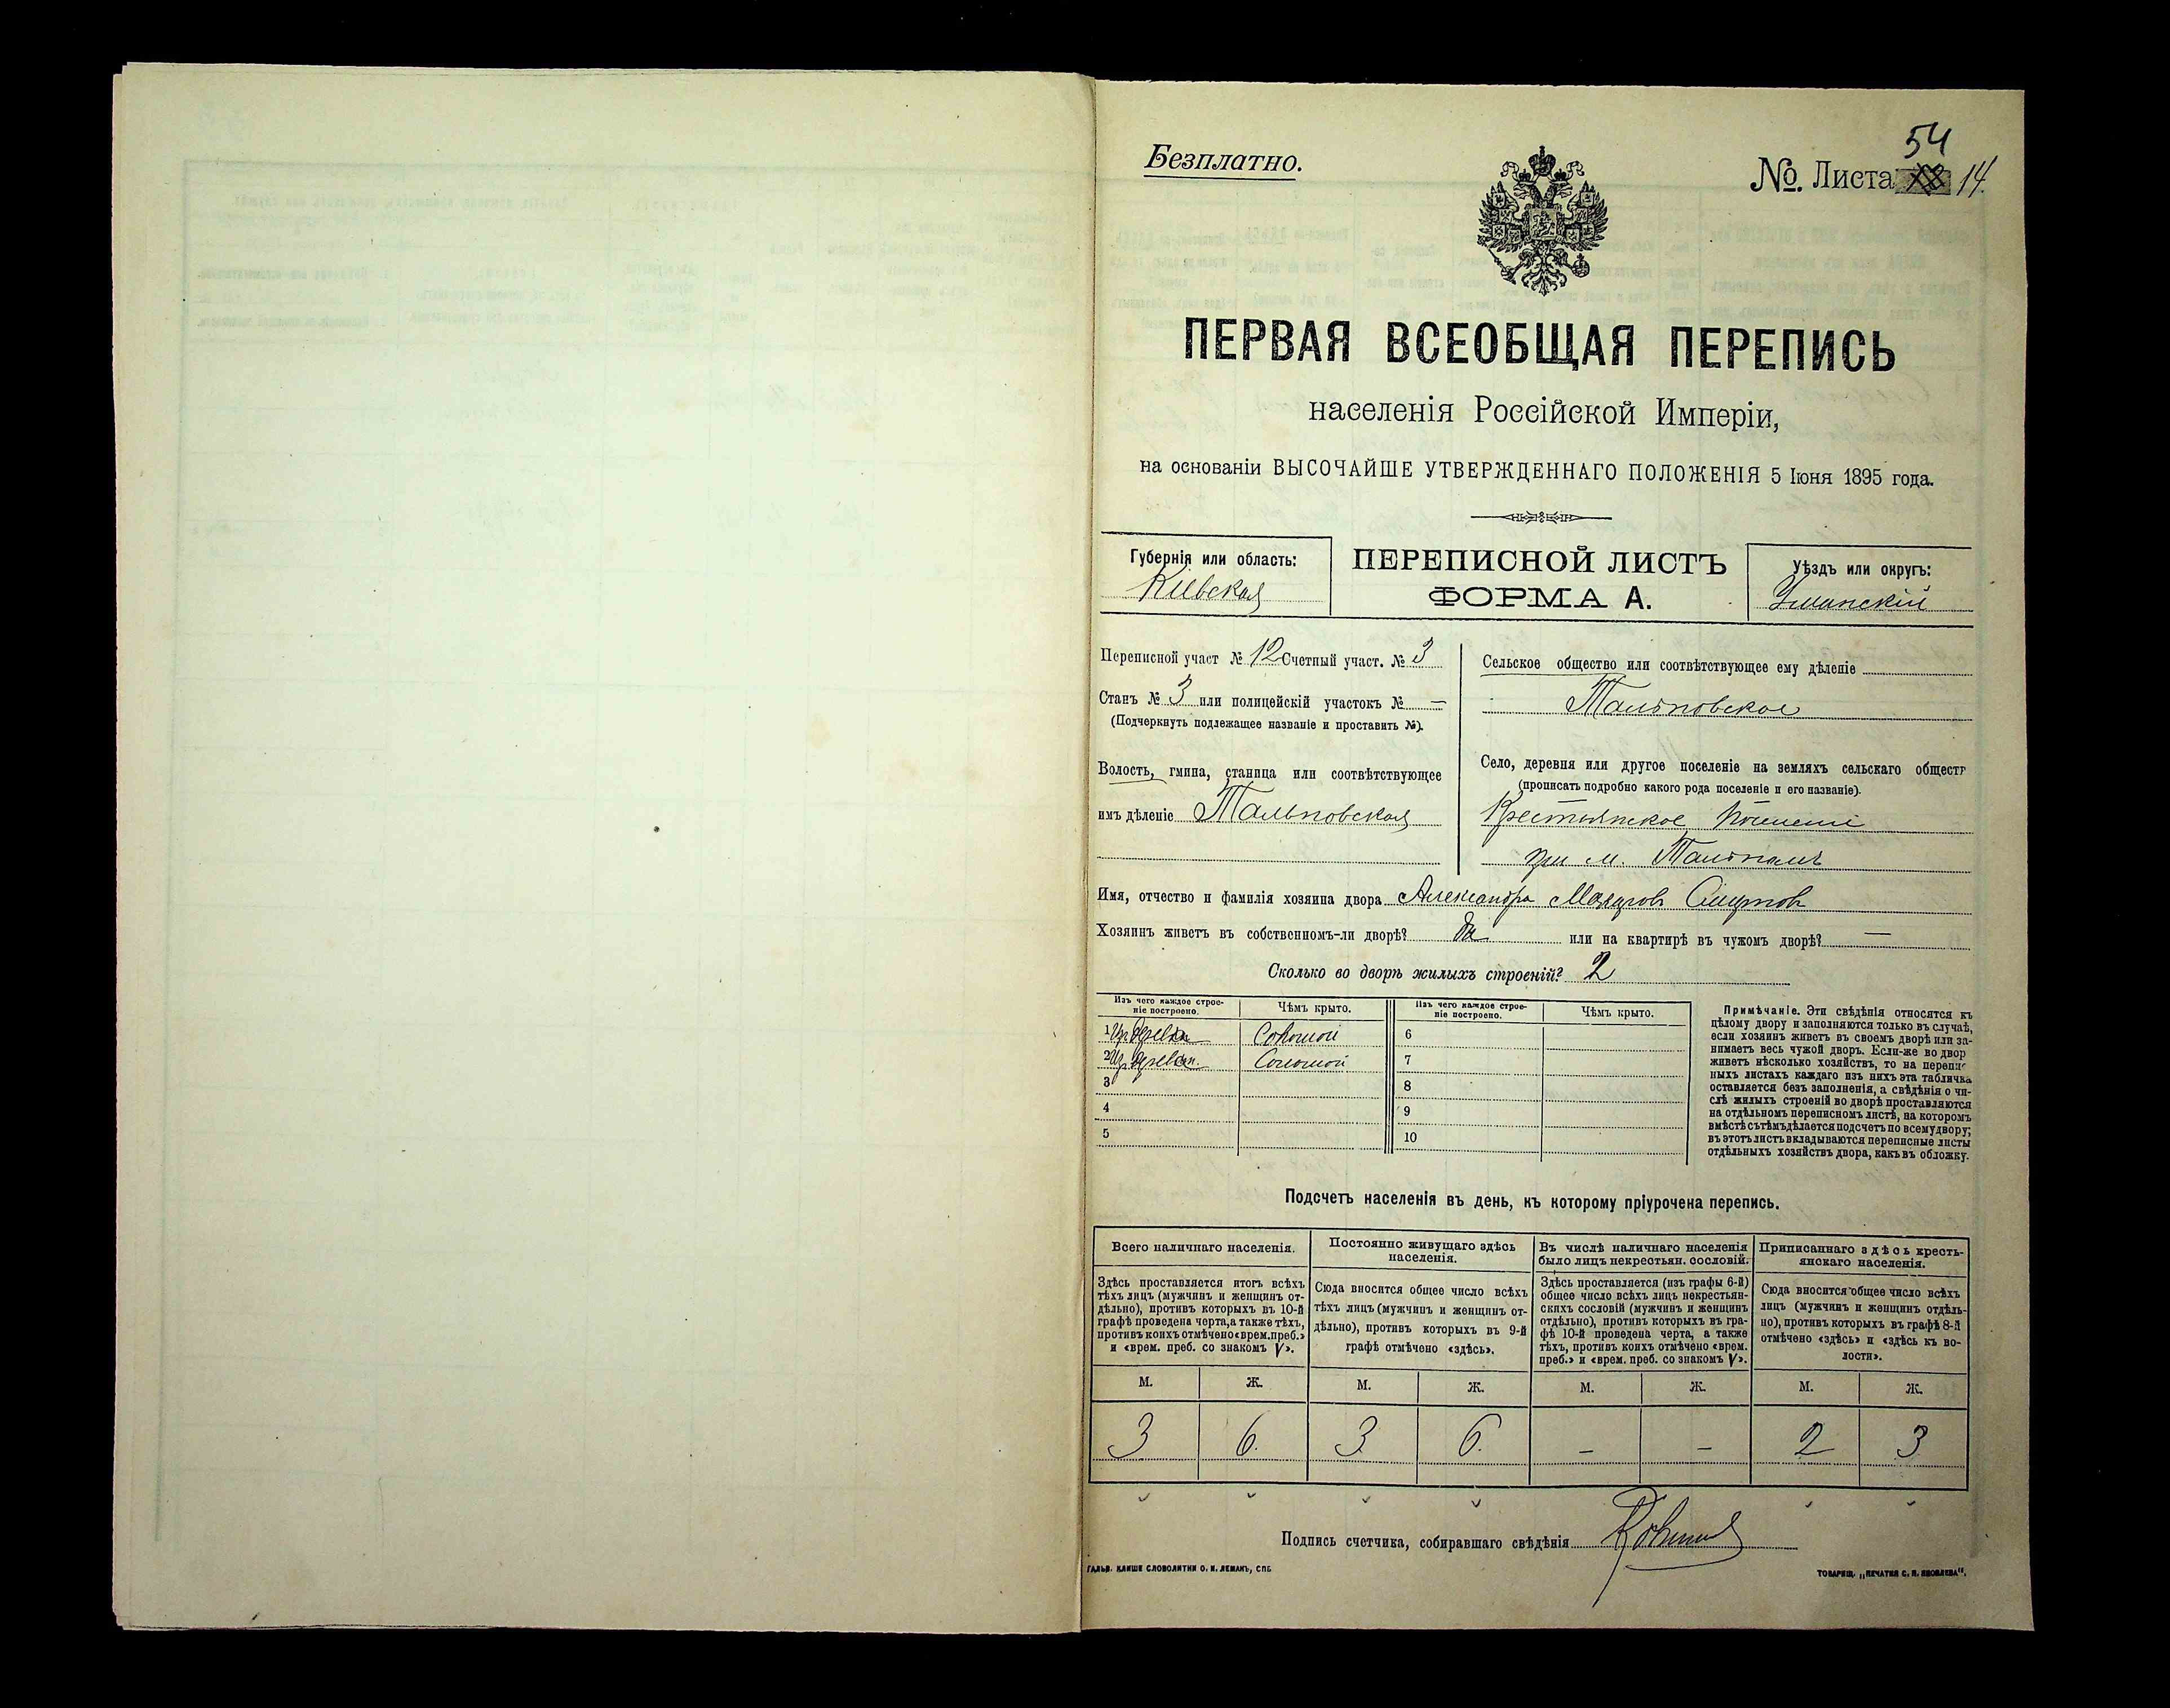 Безплатно.
54
№. Листа 14.
ПЕРВАЯ ВСЕОБЩАЯ ПЕРЕПИСЬ
населенія Россійской Имперіи,
на основаніи ВЫСОЧАЙШЕ УТВЕРЖДЕННАГО ПОЛОЖЕНІЯ 5 Іюня 1895 года.
Губернія или область:
Кіевская
ПЕРЕПИСНОЙ ЛИСТЪ
ФОРМА А.
Уѣздъ или округъ:
Уманскій
Переписной участ № 12 Счетный участ. № 3
Станъ № 3 или полицейскій участокъ № —
(Подчеркнуть подлежащее названіе и проставить №).
Волость, гмина, станица или соотвѣтствующее
имъ дѣленіе Тальновская
Сельское общество или соотвѣтствующее ему дѣленіе
Тальновское
Село, деревня или другое поселеніе на земляхъ сельскаго обществ
(прописать подробно какого рода поселеніе и его названіе).
Крестьянское
при м. Тальномъ
Имя, отчество и фамилія хозяина двора Александра
Хозяинъ живетъ въ собственномъ-ли дворѣ? да или на квартирѣ въ чужомъ дворѣ? —
Сколько во дворѣ жилыхъ строеній? 2
Изъ чего каждое строе-
ніе построено.
Чѣмъ крыто.
Изъ чего каждое строе-
ніе построено.
Чѣмъ крыто.
1 Соломой
2 Соломой
3
4
5
6
7
8
9
10
Примѣчаніе. Эти свѣдѣнія относятся къ
цѣлому двору и заполняются только въ случаѣ,
если хозяинъ живетъ въ своемъ дворѣ или за-
нимаетъ весь чужой дворъ. Если-же во двор
живетъ нѣсколько хозяйствъ, то на перепис
ныхъ листахъ каждаго изъ нихъ эта табличка
оставляется безъ заполненія, а свѣдѣнія о чи-
слѣ жилыхъ строеній во дворѣ проставляются
на отдѣльномъ переписномъ листѣ, на которомъ
вмѣстѣ съ тѣмъ дѣлается подсчетъ по всему двору;
въ этотъ листъ вкладываются переписные листы
отдѣльныхъ хозяйствъ двора, какъ въ обложку.
Подсчетъ населенія въ день, къ которому пріурочена перепись.
Всего наличнаго населенія.
Здѣсь проставляется итогъ всѣхъ
тѣхъ лицъ (мужчинъ и женщинъ от-
дѣльно), противъ которыхъ въ 10-й
графѣ проведена черта, а также тѣхъ,
противъ коихъ отмѣчено «врем. преб.»
и «врем. преб. со знакомъ V».
Постоянно живущаго здѣсь
населенія.
Сюда вносится общее число всѣхъ
тѣхъ лицъ (мужчинъ и женщинъ от-
дѣльно), противъ которыхъ въ 9-й
графѣ отмѣчено «здѣсь».
Въ числѣ наличнаго населенія
было лицъ некрестьян. сословій.
Здѣсь проставляется (изъ графы 6-й)
общее число всѣхъ лицъ некрестьян-
скихъ сословій (мужчинъ и женщинъ
отдѣльно), противъ которыхъ въ гра-
фѣ 10-й проведена черта, а также
тѣхъ, противъ коихъ отмѣчено «врем.
преб.» и «врем. преб. со знакомъ V».
Приписаннаго здѣсь кресть-
янскаго населенія.
Сюда вносится общее число всѣхъ
лицъ (мужчинъ и женщинъ отдѣль-
но), противъ которыхъ въ графѣ 8-й
отмѣчено «здѣсь» и «здѣсь къ во-
лости».
М. Ж. М. Ж. М. Ж. М. Ж.
3 6. 3 6. – – 2 3
Подпись счетчика, собиравшаго свѣдѣнія
ГАЛЬВ. КЛИШЕ СЛОВОЛИТНИ О. И. ЛЕМАНЪ, СПБ
ТОВАРИЩ. „ПЕЧАТНЯ С. П. ЯКОВЛЕВА“.